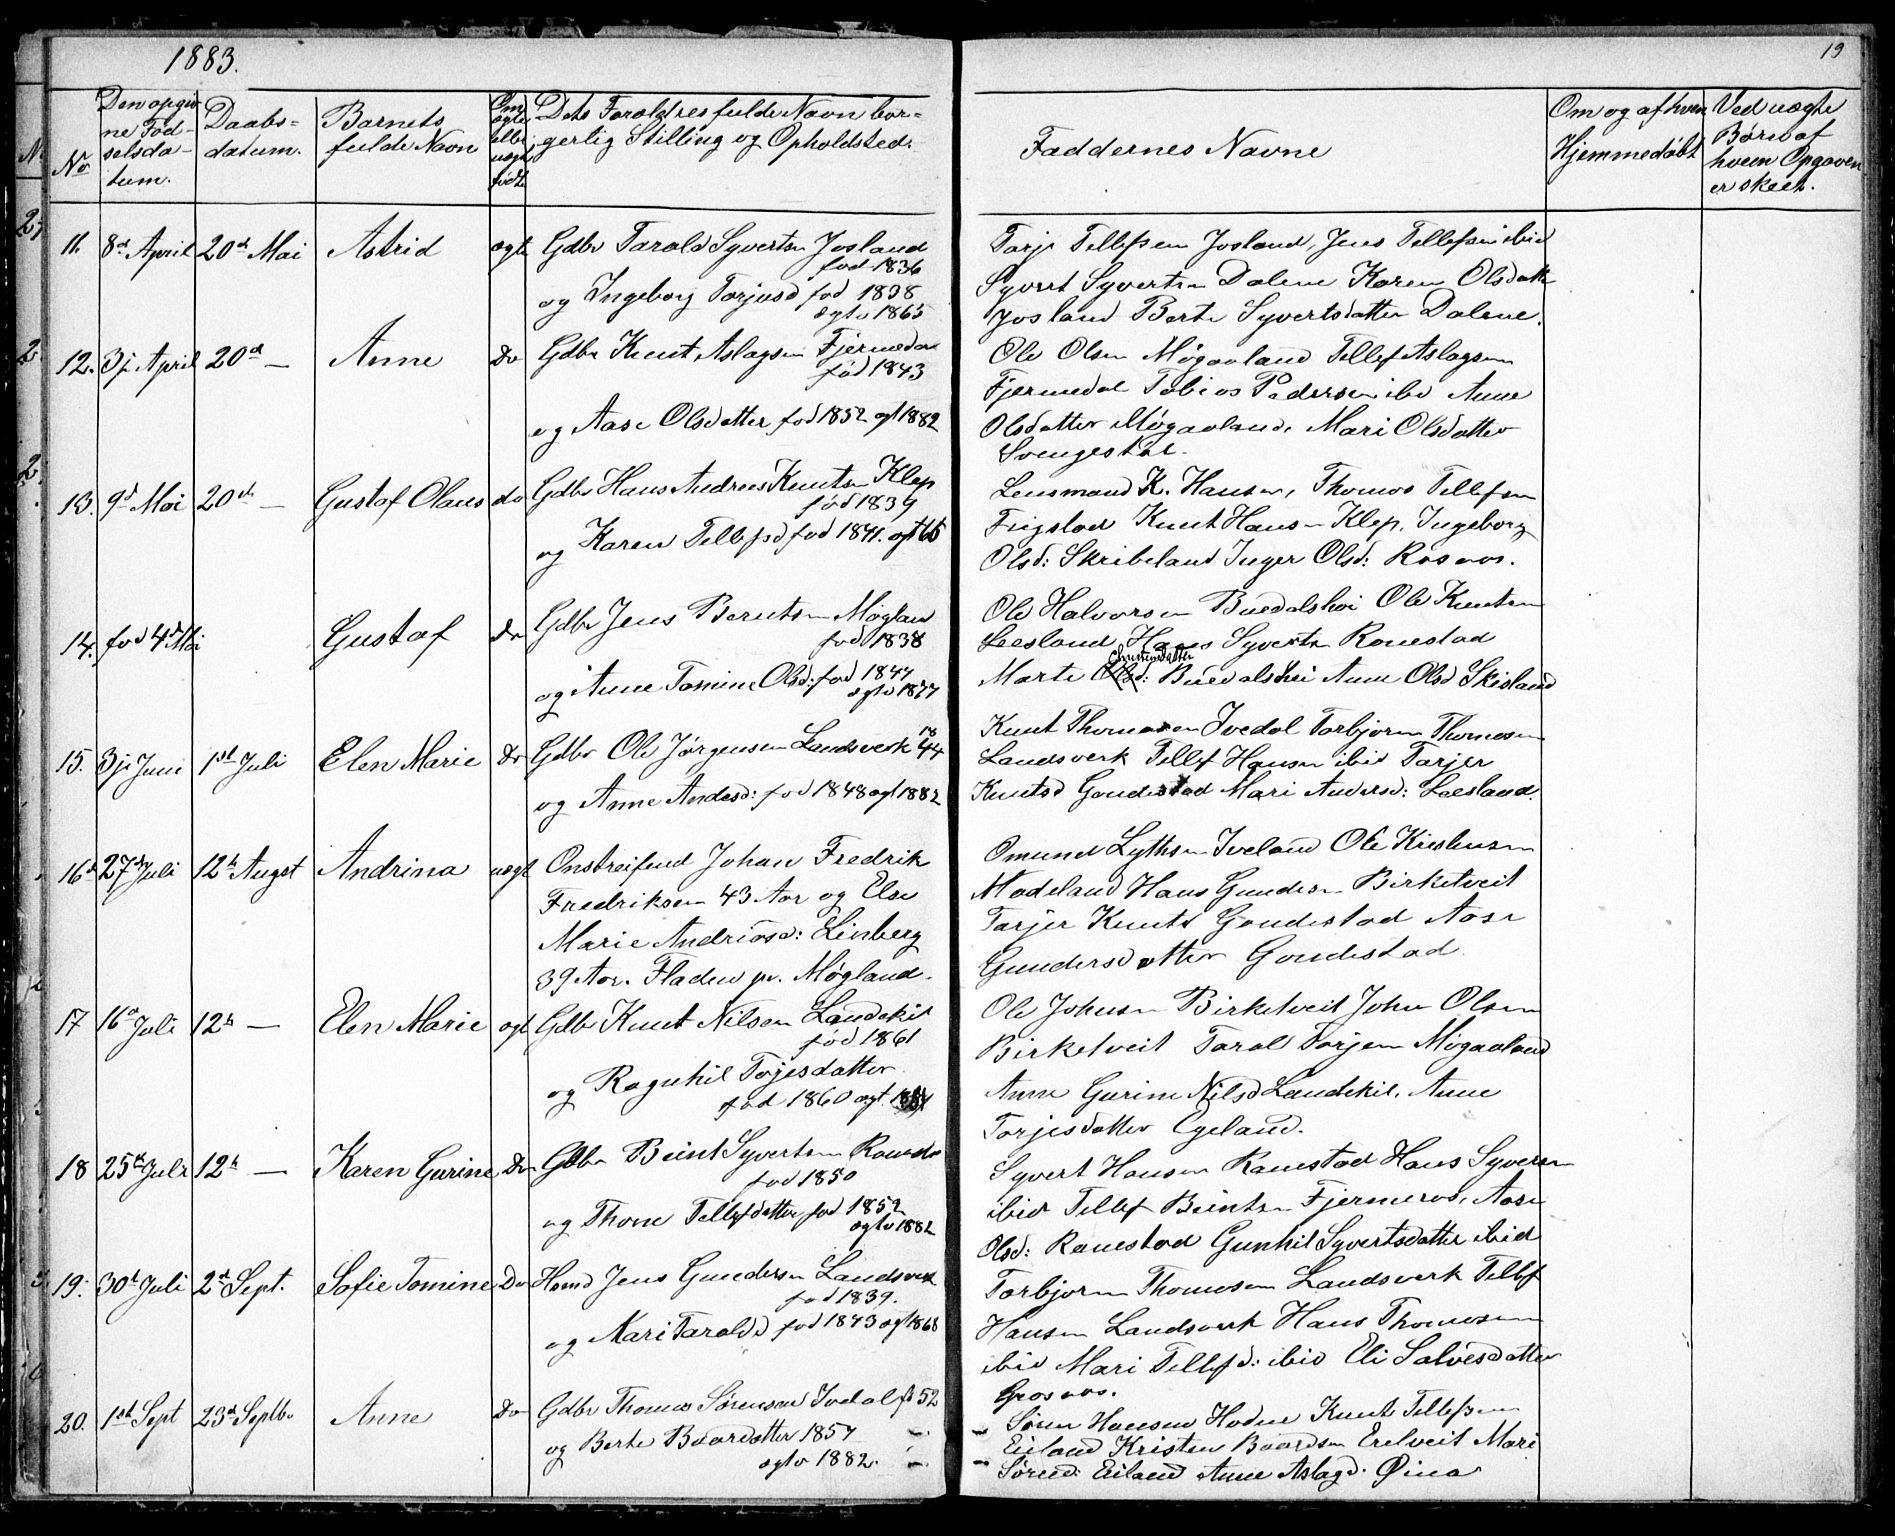 1883.
19
No
Den opgiv
ne Föd-
selsda-
tum.
Daabs-
datum.
Barnets
fulde Navn
Om
ægte
eller
uægte
födt
Dets Forældres fulde Navn bor-
gerlig Stilling og Opholdsted.
Faddernes Navne
Om og af hvem
Hjemmedöbt
Ved uægte
Börn af
hvem Opgaven
er skeet.
11. 8de April 20de Mai Astrid ægte Gdbr Tarald Syvertsn Josland
fod 1836
og Ingeborg Torjusd fod 1838
ægtv 1865
Torje Tellefsen Josland, Jens Tellefsen ibid
Syvert Syvertsn Dalene Karen Olsdatt
Josland Berte Syvertsdatter Dalene.
12. 3j April 20de — Anne Do Gdbr Knut Aslagsen Fjermedal
fød 1843
og Aase Olsdatter fod 1852 ægt 1882
Ole Olsen Møgaaland Tellef Aslagsen
Fjermedal Tobias Pedersen ibd Anne
Olsdatter Møgaaland, Mari Olsdatter
Svengestöl.
13. 9de Mai 20de — Gustaf Olaus do Gdbr Hans Andreas Knutsn Klep
fød 1839
og Karen Tellefsd fod 1841. ægt 66
Lensmand K. Hansen, Thomas Tellefsen
Frigstad Knut Hansn Klep, Ingeborg
Olsd: Skribeland Inger Olsd: Rosaas.
14. fod 4de Mai Gustaf Do Gdbr Jens Berntsn Møglan
fod 1838
og Anne Tomine Olsd: fod 1847
ægtv 1877
Ole Halvorsen Buedalshei Ole Knutsn
Leesland, Hans Syvertsn Ronestad
Marte Olsd: Christensdatter Buedalshei Anne Olsd Skisland
15. 3j Juni 1ste Juli Elen Marie Do Gdbr Ole Jörgensen Landsverk 1844
og Anne Andersd: fod 1848 ægt 1882
Knut Thomasen Ivedal Torbjorn Thomesen
Landsverk Tellef Hansen ibid Tarjer
Knutsd Gondestad Mari Andersd: Leesland.
16de 27de Juli 12te Augst Andrina uægt Onstreifend Johan Fredrik
Fredriksen 43 Aar og Else
Marie Andreasd: Linberg
39 Aar. Fladen pr. Møgland.
Omund Lythsn Iveland Ole Kristensen
Modeland Hans Gundersn Birketveit
Tarjer Knutsd Gondestad Aase
Gundersdatter Gondestad
17 16de Juli 12te — Elen Marie ægt Gdbr Knut Nilsen Landekil
fod 1861
og Ragnhil Torjesdatter
fød 1860 ægt.
Ole Johnsen Birketveit John Olsen
Birketveit Taral Torjesn Møgaaland
Anne Gurine Nilsd Landekil, Anne
Torjesdatter Egeland.
18 25de Juli 12te — Karen Gurine Do Gdbr Beint Syvertsen Ronesta
fod 1850
og Thone Tellefsdatter fod 1852
ægtv 1882
Syvert Hansen Ronestad Hans Syversn
ibid Tellef Beintsn Fjermeros, Aase
Olsd: Ronestad Gunhil Syvertsdatter ibid
19. 30te Juli 2de Sept. Sofie Tomine Do Hsmd Jens Gundersn Landsverk
fod 1839.
og Mari Taralds fod 1843 ægt 1868
Torbjorn Thomesen Landsverk Tellef
Hansen Landsverk Hans Thomesen
ibid Mari Tellefd: ibid Eli Salvesdatter
Grosaas.
20. 1ste Sept 23de Septbr Anne Do Gdbr Thomas Sörensen Ivedal fd 52
og Berte Baardsdatter 1857
ægtv 1882.
Sören Hansen Hodne Knut Tellefsen
Eiland Kristen Baardsn Erelveit Mari
Sörensd: Eiland Anne Aslagd. Øina